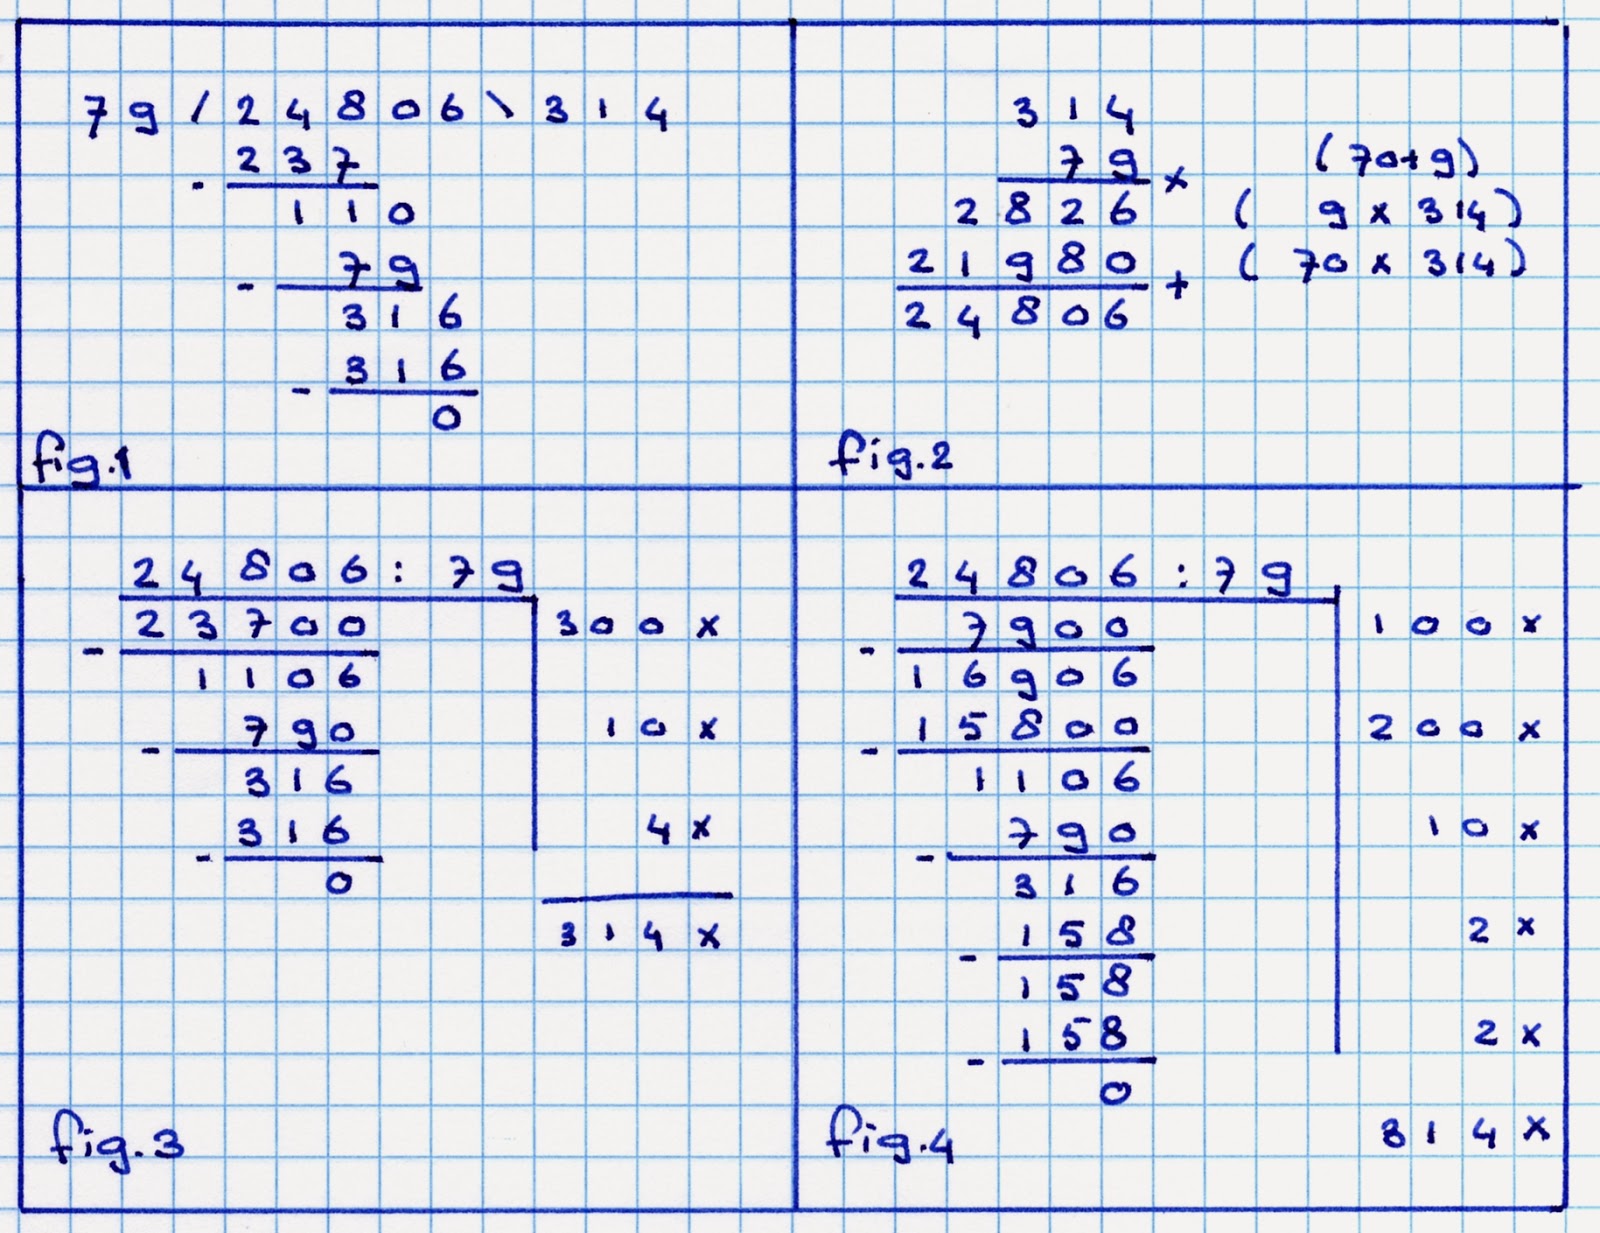 79 / 24806 \ 314
- 237
110
- 79
316
- 316
0
fig.1
314
79 × (70+9)
2826 ( 9 × 314)
21980 + ( 70 × 314)
24806
fig.2
24806 : 79
- 23700 300 ×
1106
- 790 10 ×
316
- 316 4 ×
0
314 ×
fig.3
24806 : 79
- 7900 100 ×
16906
- 15800 200 ×
1106
- 790 10 ×
316
- 158 2 ×
158
- 158 2 ×
0
314 ×
fig.4